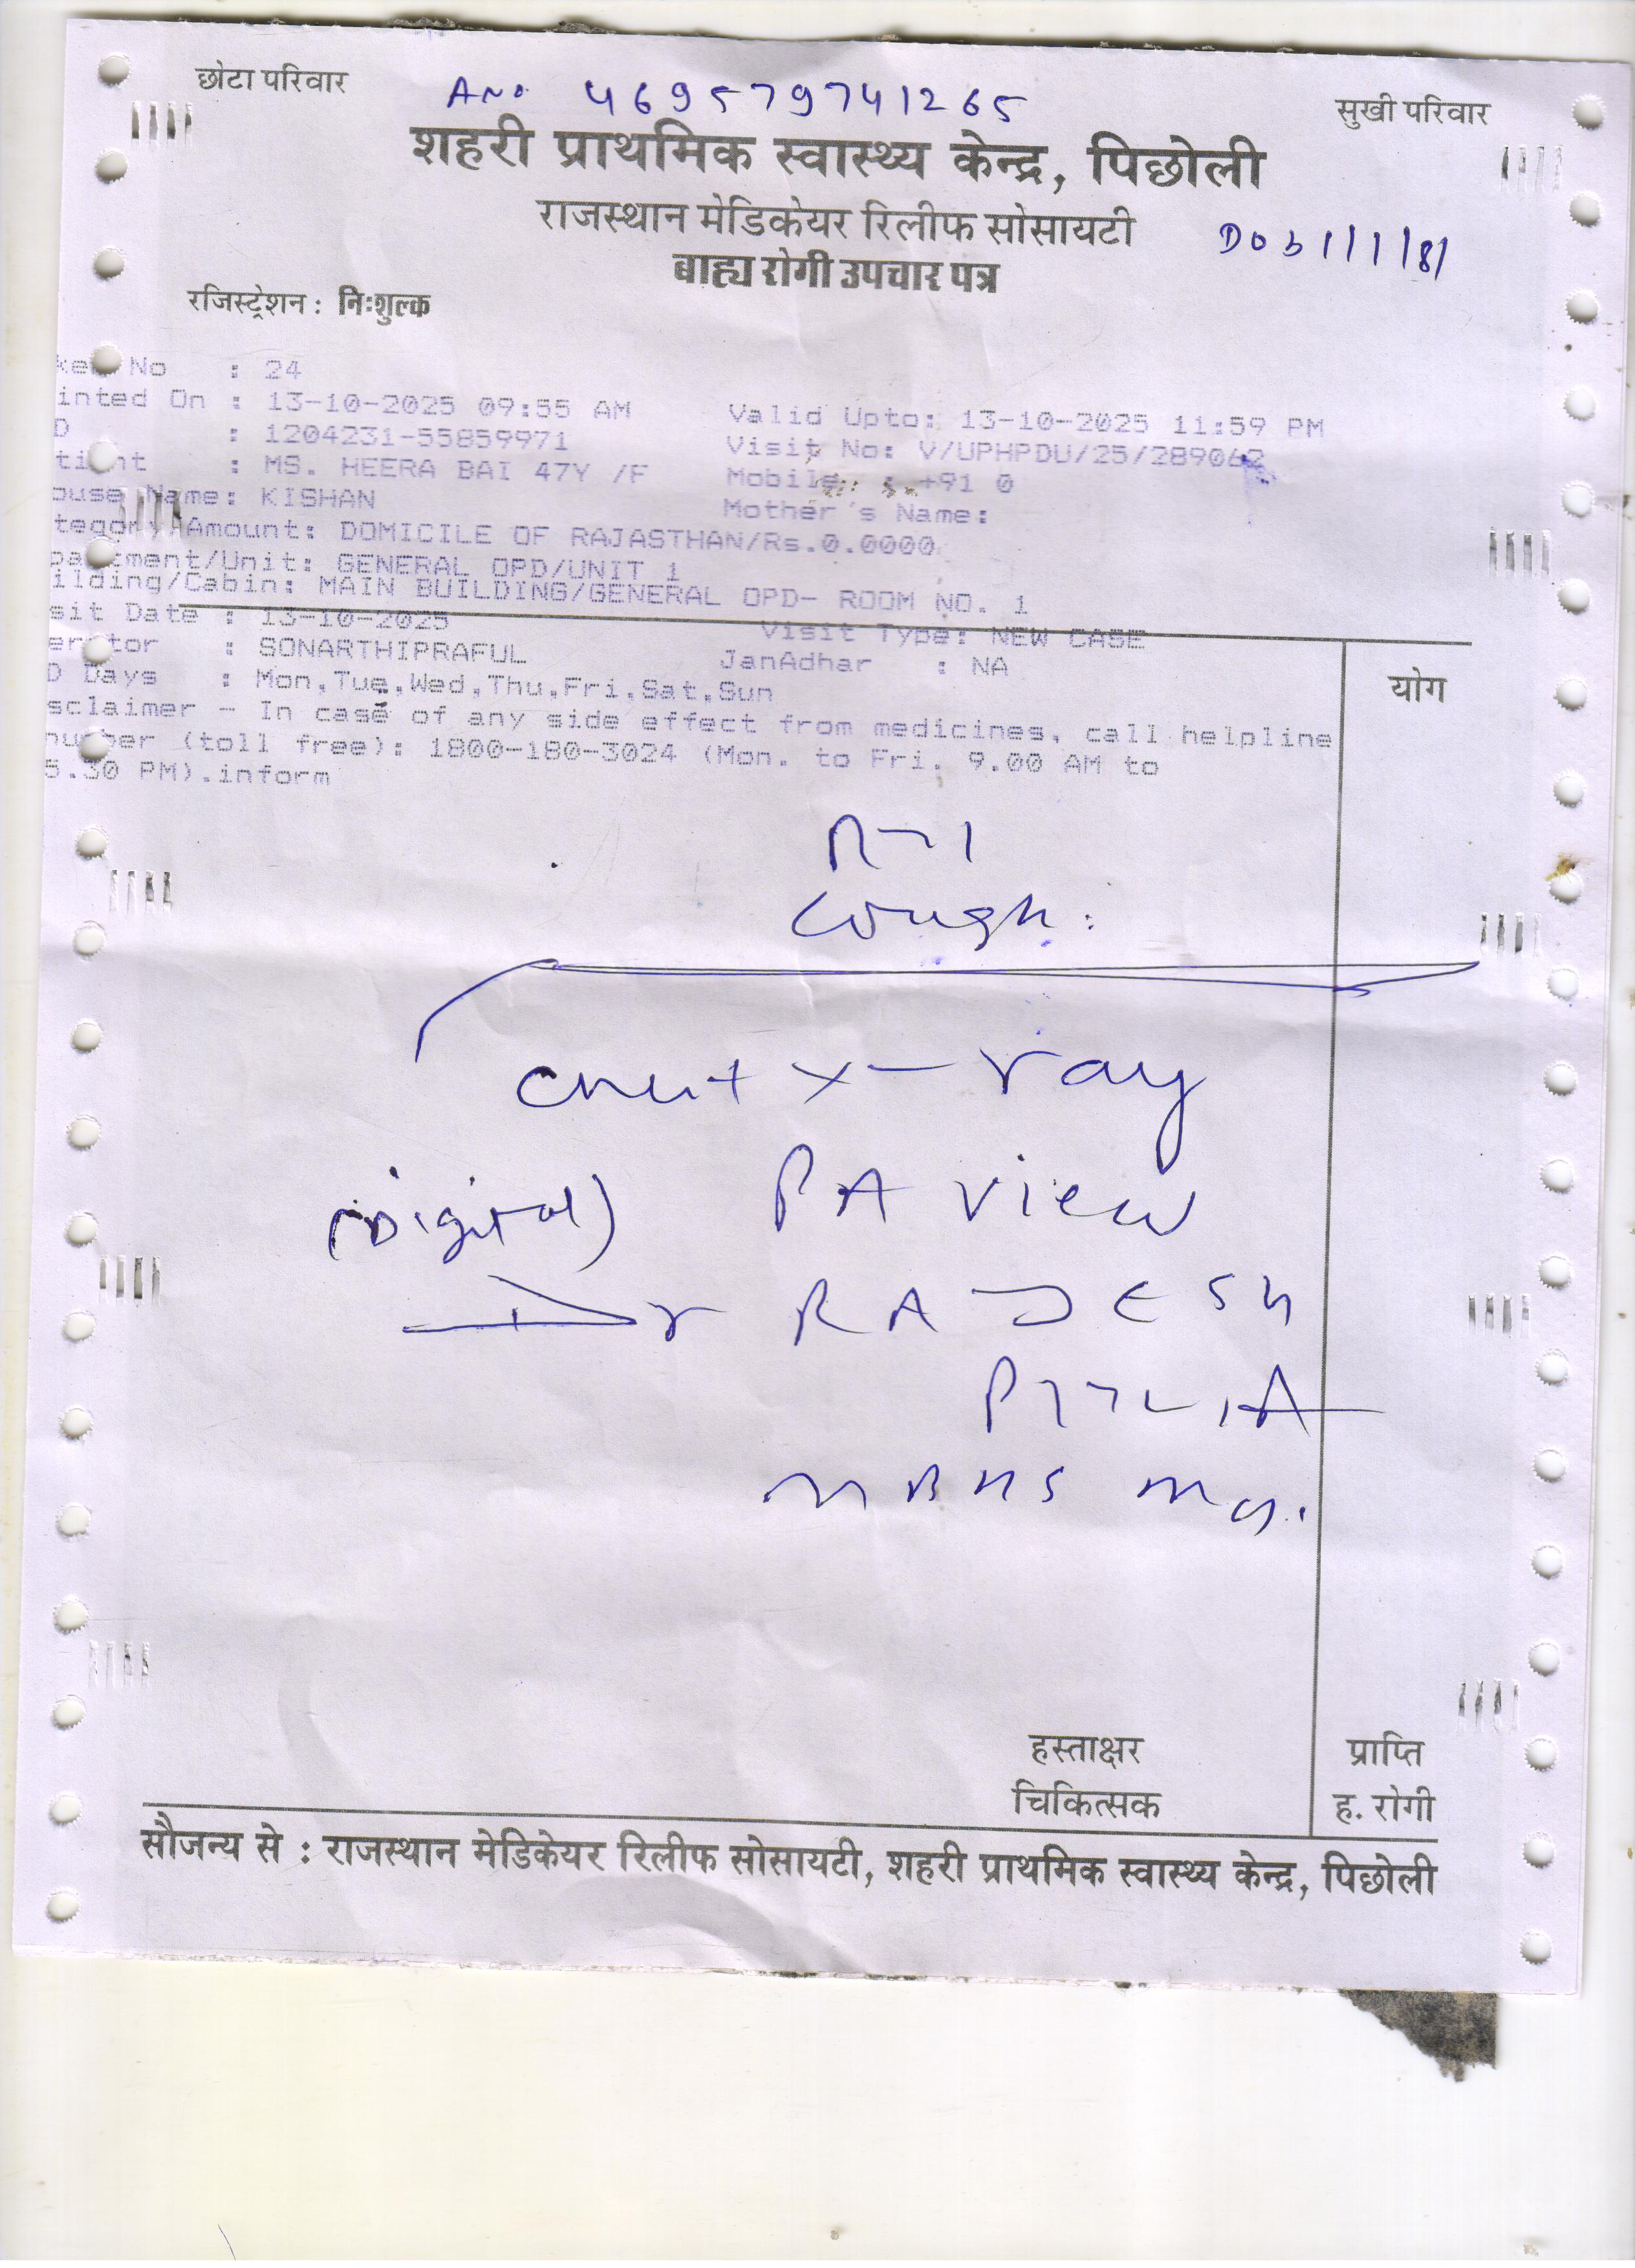 छोटा परिवार
A No 469579741265
सुखी परिवार
शहरी प्राथमिक स्वास्थ्य केन्द्र, पिछोली
राजस्थान मेडिकेयर रिलीफ सोसायटी
DOB 1/1/81
बाह्य रोगी उपचार पत्र
रजिस्ट्रेशन : निःशुल्क
ke No : 24
inted On : 13-10-2025 09:55 AM Valid Upto: 13-10-2025 11:59 PM
D : 1204231-55859971 Visit No: V/UPHPDU/25/289062
tient : MS. HEERA BAI 47Y /F Mobile : +91 0
ouse Name: KISHAN Mother's Name:
tegory/Amount: DOMICILE OF RAJASTHAN/Rs.0.0000
partment/Unit: GENERAL OPD/UNIT 1
ilding/Cabin: MAIN BUILDING/GENERAL OPD- ROOM NO. 1
sit Date : 13-10-2025 Visit Type: NEW CASE
erator : SONARTHIPRAFUL JanAdhar : NA
D Days : Mon,Tue,Wed,Thu,Fri,Sat,Sun
योग
sclaimer - In case of any side effect from medicines, call helpline
number (toll free): 1800-180-3024 (Mon. to Fri. 9.00 AM to
5.30 PM).inform
Cough
Chest X-ray
(Digital) PA View
Dr RAJESH
MBBS
हस्ताक्षर प्राप्ति
चिकित्सक ह. रोगी
सौजन्य से : राजस्थान मेडिकेयर रिलीफ सोसायटी, शहरी प्राथमिक स्वास्थ्य केन्द्र, पिछोली